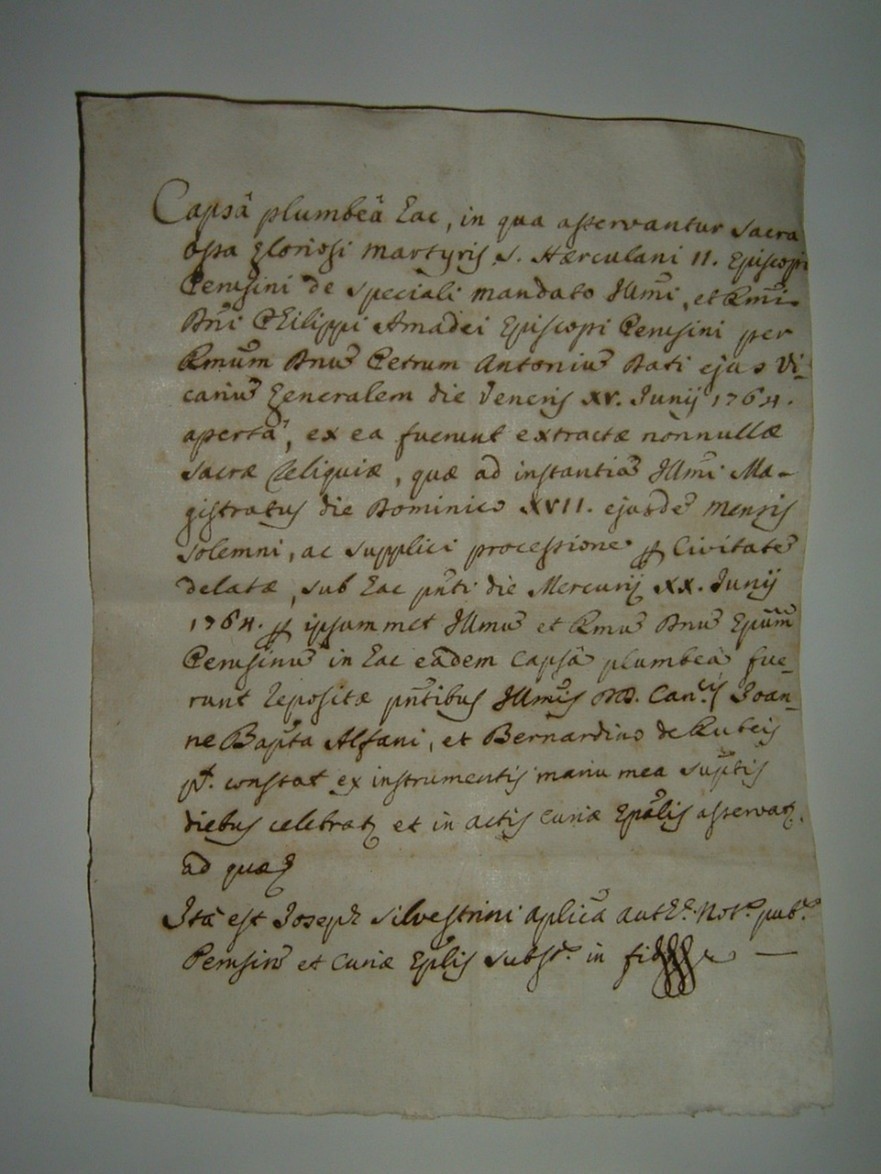 Capsâ plumbeâ hac, in qua asservantur sacra
ossa gloriosi Martyris S. Herculani II. Episcopi
Perusini de speciali mandato Illm̃i, et Rmĩ
Dnĩ Philippi Amadei Episcopi Perusini per
Rmũm Dnũ Petrum Antoniũ Bati ejus Vi-
cariũ Generalem die Veneris XV. Junij 1764.
apertâ, ex ea fuerunt extractæ nonnullæ
sacræ Reliquiæ, quæ ad instantiã Illm̃i Ma-
gistratus die Dominico XVII. ejusdẽ Mensis
solemni, ac supplici processione ꝑ Civitatẽ
delatæ, sub hac pñti die Mercurij XX. Junij
1764. ꝑ ipsummet Illmũ et Rmũ Dnũ Epũm
Perusinũ in hac eâdem Capsâ plumbeâ fue-
runt repositæ pñtibus Illmĩs DD. Can.cis Joan-
ne Bapt̃a Alfani, et Bernardino de Rubeis
pt. constat ex instrumentis manu mea sup̃tis
diebus celebratꝫ et in actis Curiæ Ep̃alis asservatꝫ.
ad quæ
Ita est Joseph Silvestrini Aplicã auth.e Not.s pub.s
Perusinũ et Curiæ Ep̃lis subst.s in fide